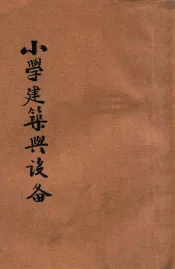 小學建築與设备